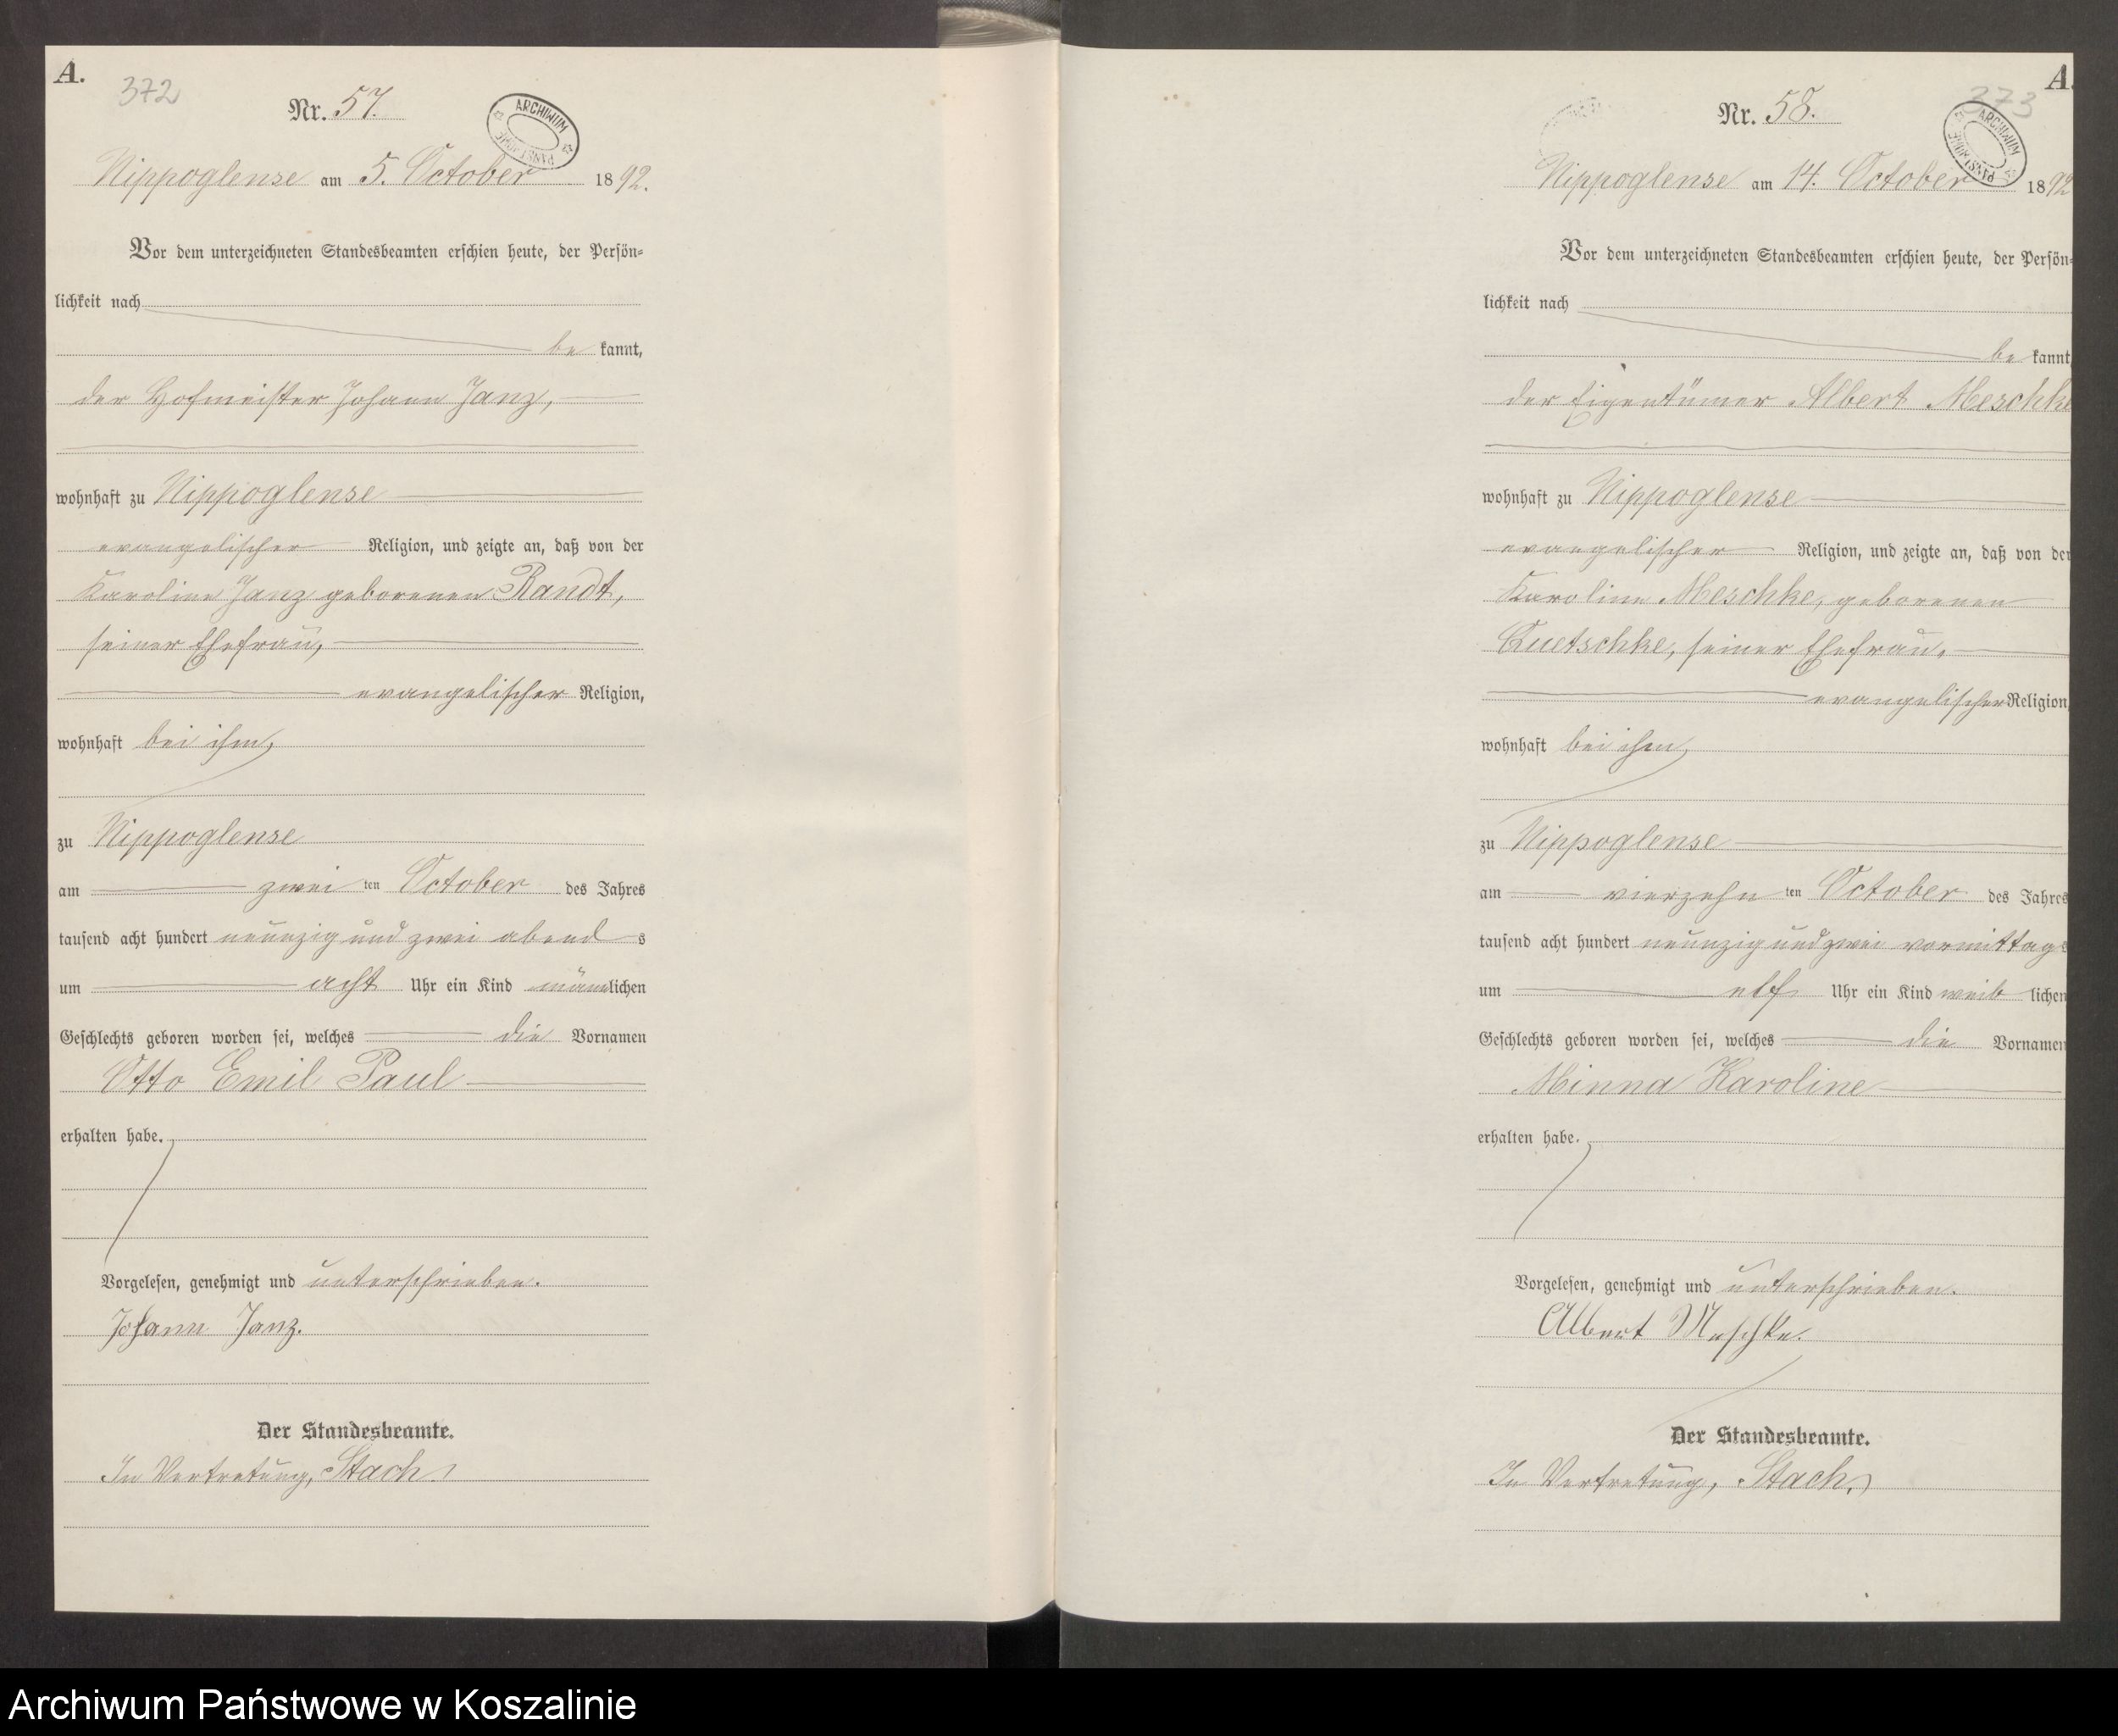 A.
372
Nr. 57.
ARCHIWUM PAŃSTWOWE
Nippoglense am 5. October 1892.
Vor dem unterzeichneten Standesbeamten erschien heute, der Persön=
lichkeit nach
be kannt,
der Hofmeister Johann Janz,
wohnhaft zu Nippoglense
evangelischer Religion, und zeigte an, daß von der
Karoline Janz geborenen Randt,
seiner Ehefrau,
evangelischer Religion,
wohnhaft bei ihm,
zu Nippoglense
am zwei ten October des Jahres
tausend acht hundert neunzig und zwei abend s
um acht Uhr ein Kind männlichen
Geschlechts geboren worden sei, welches die Vornamen
Otto Emil Paul
erhalten habe.
Vorgelesen, genehmigt und unterschrieben.
Johann Janz.
Der Standesbeamte.
In Vertretung, Stach
A.
373
Nr. 58.
ARCHIWUM PAŃSTWOWE
Nippoglense am 14. October 1892
Vor dem unterzeichneten Standesbeamten erschien heute, der Persön=
lichkeit nach
be kannt
der Eigentümer Albert Meschke
wohnhaft zu Nippoglense
evangelischer Religion, und zeigte an, daß von der
Karoline Meschke, geborenen
Quetschke, seiner Ehefrau,
evangelischer Religion,
wohnhaft bei ihm,
zu Nippoglense
am vierzehn ten October des Jahres
tausend acht hundert neunzig und zwei vormittags
um elf Uhr ein Kind weib lichen
Geschlechts geboren worden sei, welches die Vornamen
Minna Karoline
erhalten habe.
Vorgelesen, genehmigt und unterschrieben.
Albert Meschke.
Der Standesbeamte.
In Vertretung, Stach.
Archiwum Państwowe w Koszalinie